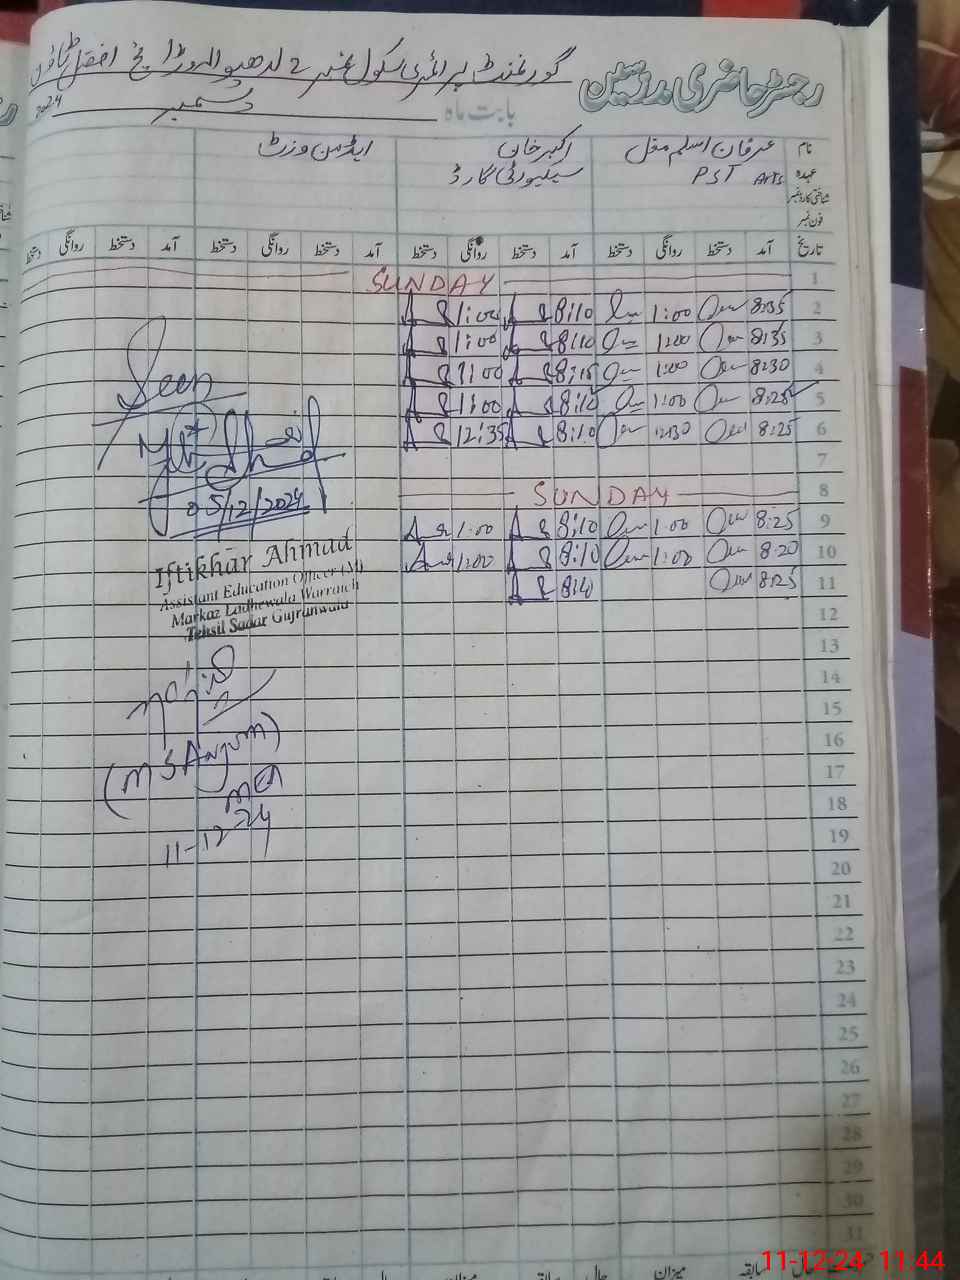 رجسٹر حاضری مدرسین
گورنمنٹ پرائمری سکول نمبر 2 لدھیوالہ وڑائچ افضل ٹاؤن
بابت ماہ دسمبر 2024
نام عرفان اسلم مغل اکبر خان ایڈمن وزٹ
عہدہ PST Arts سیکیورٹی گارڈ
شناختی کارڈ نمبر
فون نمبر
تاریخ آمد دستخط روانگی دستخط آمد دستخط روانگی دستخط آمد دستخط روانگی دستخط آمد دستخط روانگی دستخط
1 SUNDAY
2 8:35 1:00 8:10 1:00
3 8:35 1:00 8:10 1:00
4 8:30 1:00 8:15 1:00
5 8:25 1:00 8:10 1:00
6 8:25 12:30 8:10 12:35
7
8 SUNDAY
9 8:25 1:00 8:10 1:00
10 8:20 1:00 8:10 1:00
11 8:25 8:10
12
13
14
15
16
17
18
19
20
21
22
23
24
25
26
27
28
29
30
31
Seen
05/12/2024
Iftikhar Ahmad
Assistant Education Officer (M)
Markaz Ladhewala Warraich
Tehsil Sadar Gujranwala
(M S Anjum)
MEA
11-12-24
سابقہ میزان حال سابقہ میزان
11-12-24 11:44